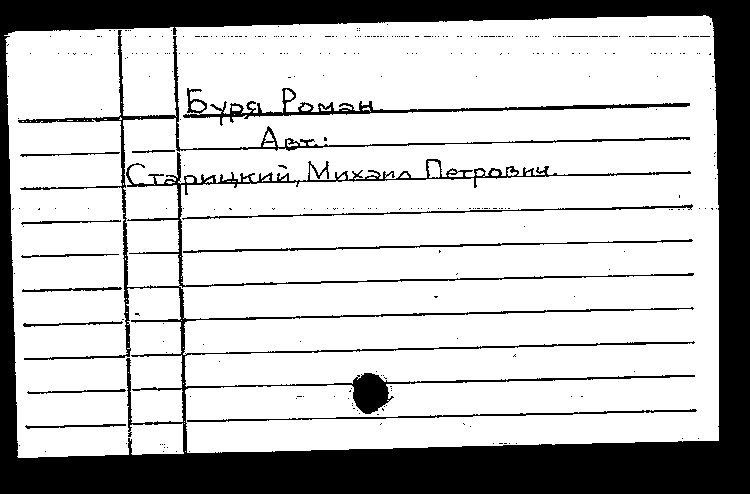 Буря Роман.
Авт.:
Старицкий, Михаил Петрович.